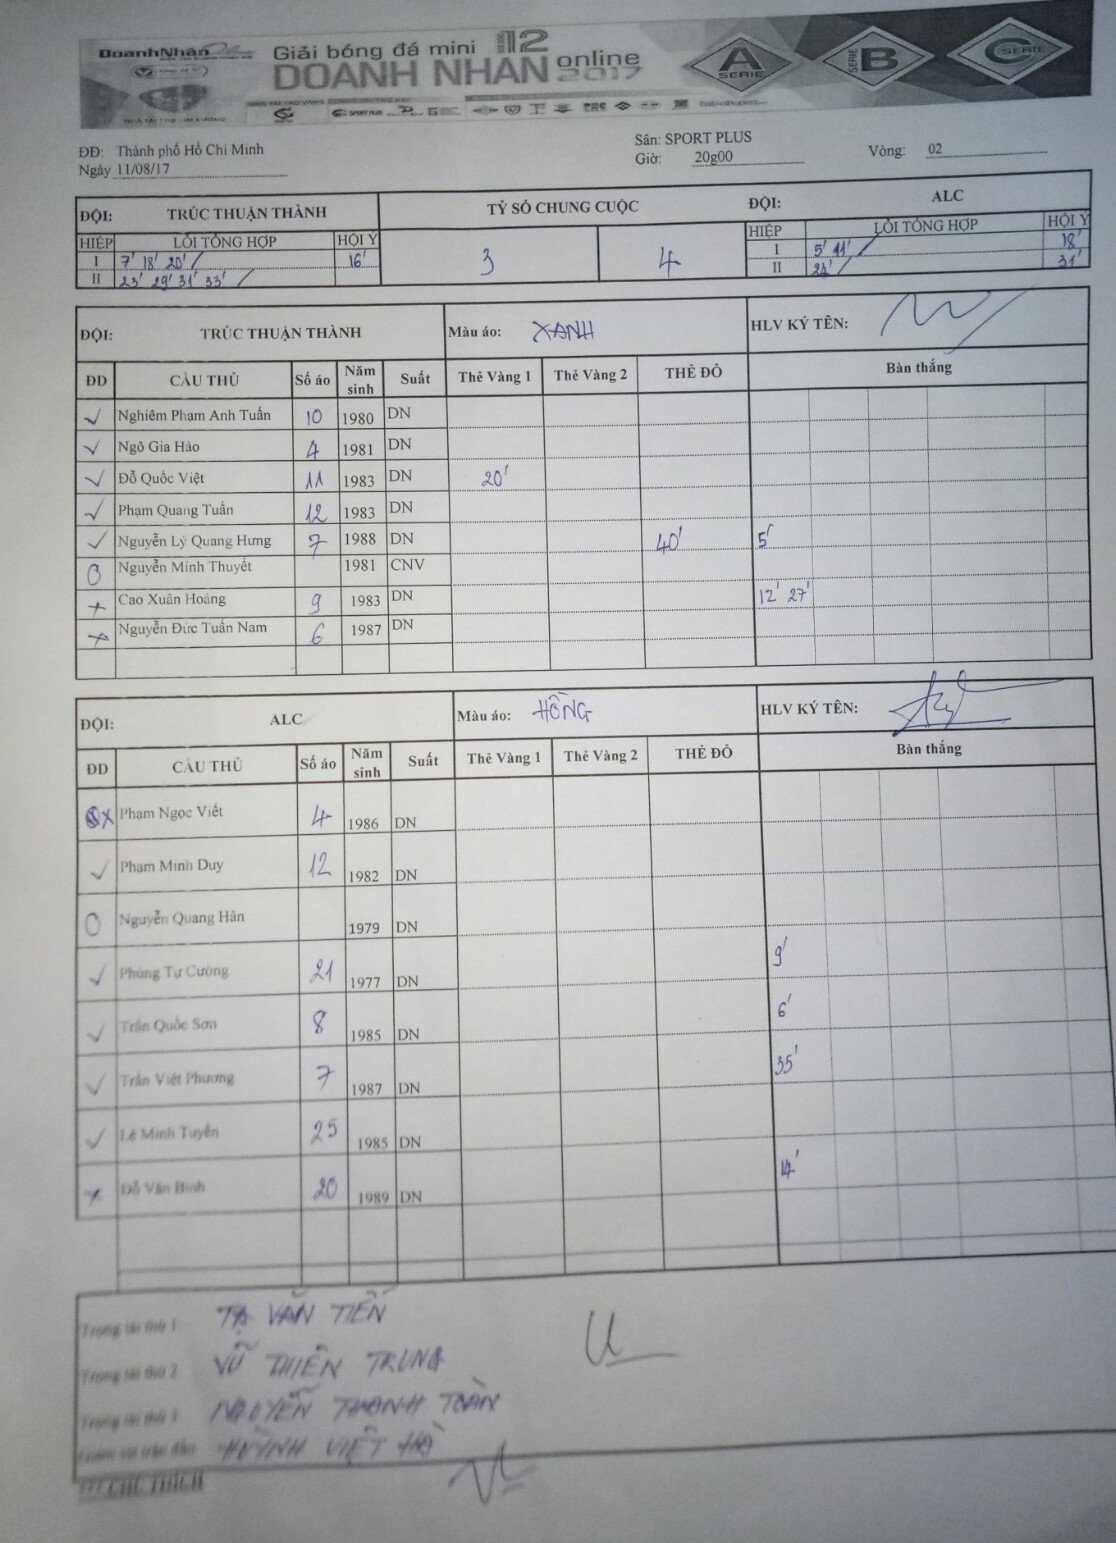 DoanhNhân Plus
Giải bóng đá mini 12
DOANH NHÂN online 2017
A SERIE
SERIE B
C SERIE
ĐĐ: Thành phố Hồ Chí Minh
Sân: SPORT PLUS
Ngày 11/08/17
Giờ: 20g00
Vòng: 02
ĐỘI: TRÚC THUẬN THÀNH TỶ SỐ CHUNG CUỘC ĐỘI: ALC
HIỆP LỖI TỔNG HỢP HỘI Ý 3 4 HIỆP LỖI TỔNG HỢP HỘI Ý
I 7' 18' 20' / 16' I 5' 11' / 18'
II 23' 29' 31' 33' / II 24' / 31'
ĐỘI: TRÚC THUẬN THÀNH Màu áo: XANH HLV KÝ TÊN:
ĐD CẦU THỦ Số áo Năm sinh Suất Thẻ Vàng 1 Thẻ Vàng 2 THẺ ĐỎ Bàn thắng
✓ Nghiêm Phạm Anh Tuấn 10 1980 DN
✓ Ngô Gia Hào 4 1981 DN
✓ Đỗ Quốc Việt 11 1983 DN 20'
✓ Phạm Quang Tuấn 12 1983 DN
✓ Nguyễn Lý Quang Hưng 7 1988 DN 40' 5'
0 Nguyễn Minh Thuyết 1981 CNV
x Cao Xuân Hoàng 9 1983 DN 12' 27'
x Nguyễn Đức Tuấn Nam 6 1987 DN
ĐỘI: ALC Màu áo: HỒNG HLV KÝ TÊN:
ĐD CẦU THỦ Số áo Năm sinh Suất Thẻ Vàng 1 Thẻ Vàng 2 THẺ ĐỎ Bàn thắng
x Phạm Ngọc Viết 4 1986 DN
✓ Phạm Minh Duy 12 1982 DN
0 Nguyễn Quang Hân 1979 DN
✓ Phùng Tự Cường 21 1977 DN 9'
✓ Trần Quốc Sơn 8 1985 DN 6'
✓ Trần Việt Phương 7 1987 DN 35'
✓ Lê Minh Tuyền 25 1985 DN
x Đỗ Văn Bình 20 1989 DN 14'
Trọng tài thứ 1 TẠ VĂN TIẾN
Trọng tài thứ 2 VŨ THIÊN TRUNG
Trọng tài thứ 3 NGUYỄN THANH TOÀN
Giám sát trận đấu HUỲNH VIỆT HÀ
GHI CHÚ THÍCH